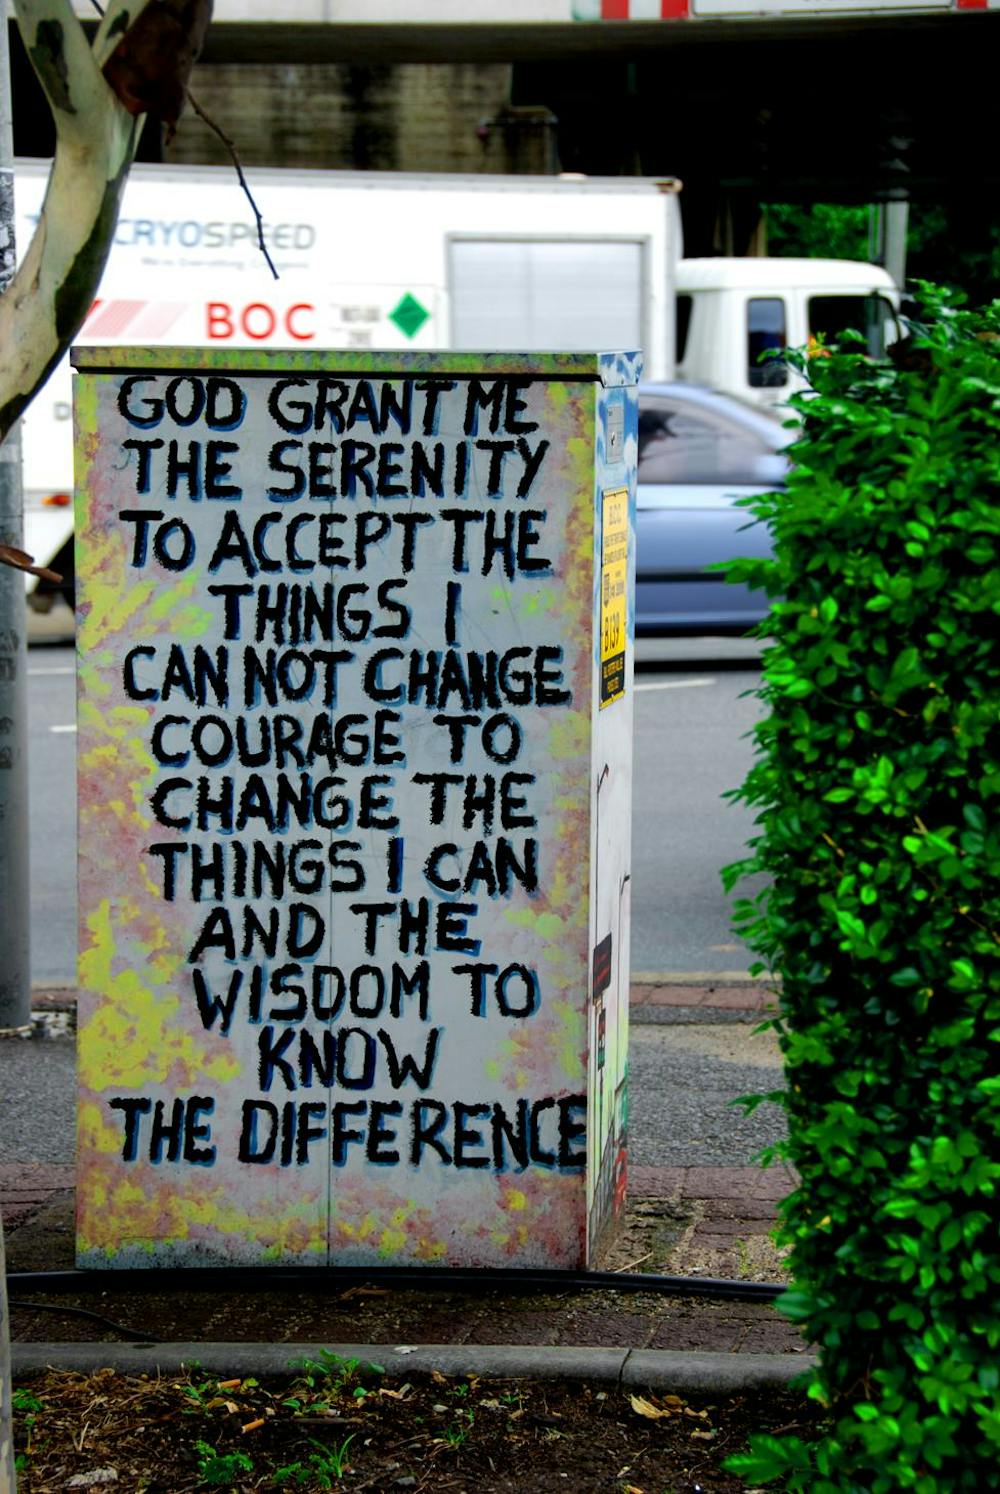 CRYOSPEED
BOC
GOD GRANT ME
THE SERENITY
TO ACCEPT THE
THINGS I
CAN NOT CHANGE
COURAGE TO
CHANGE THE
THINGS I CAN
AND THE
WISDOM TO
KNOW
THE DIFFERENCE
B139